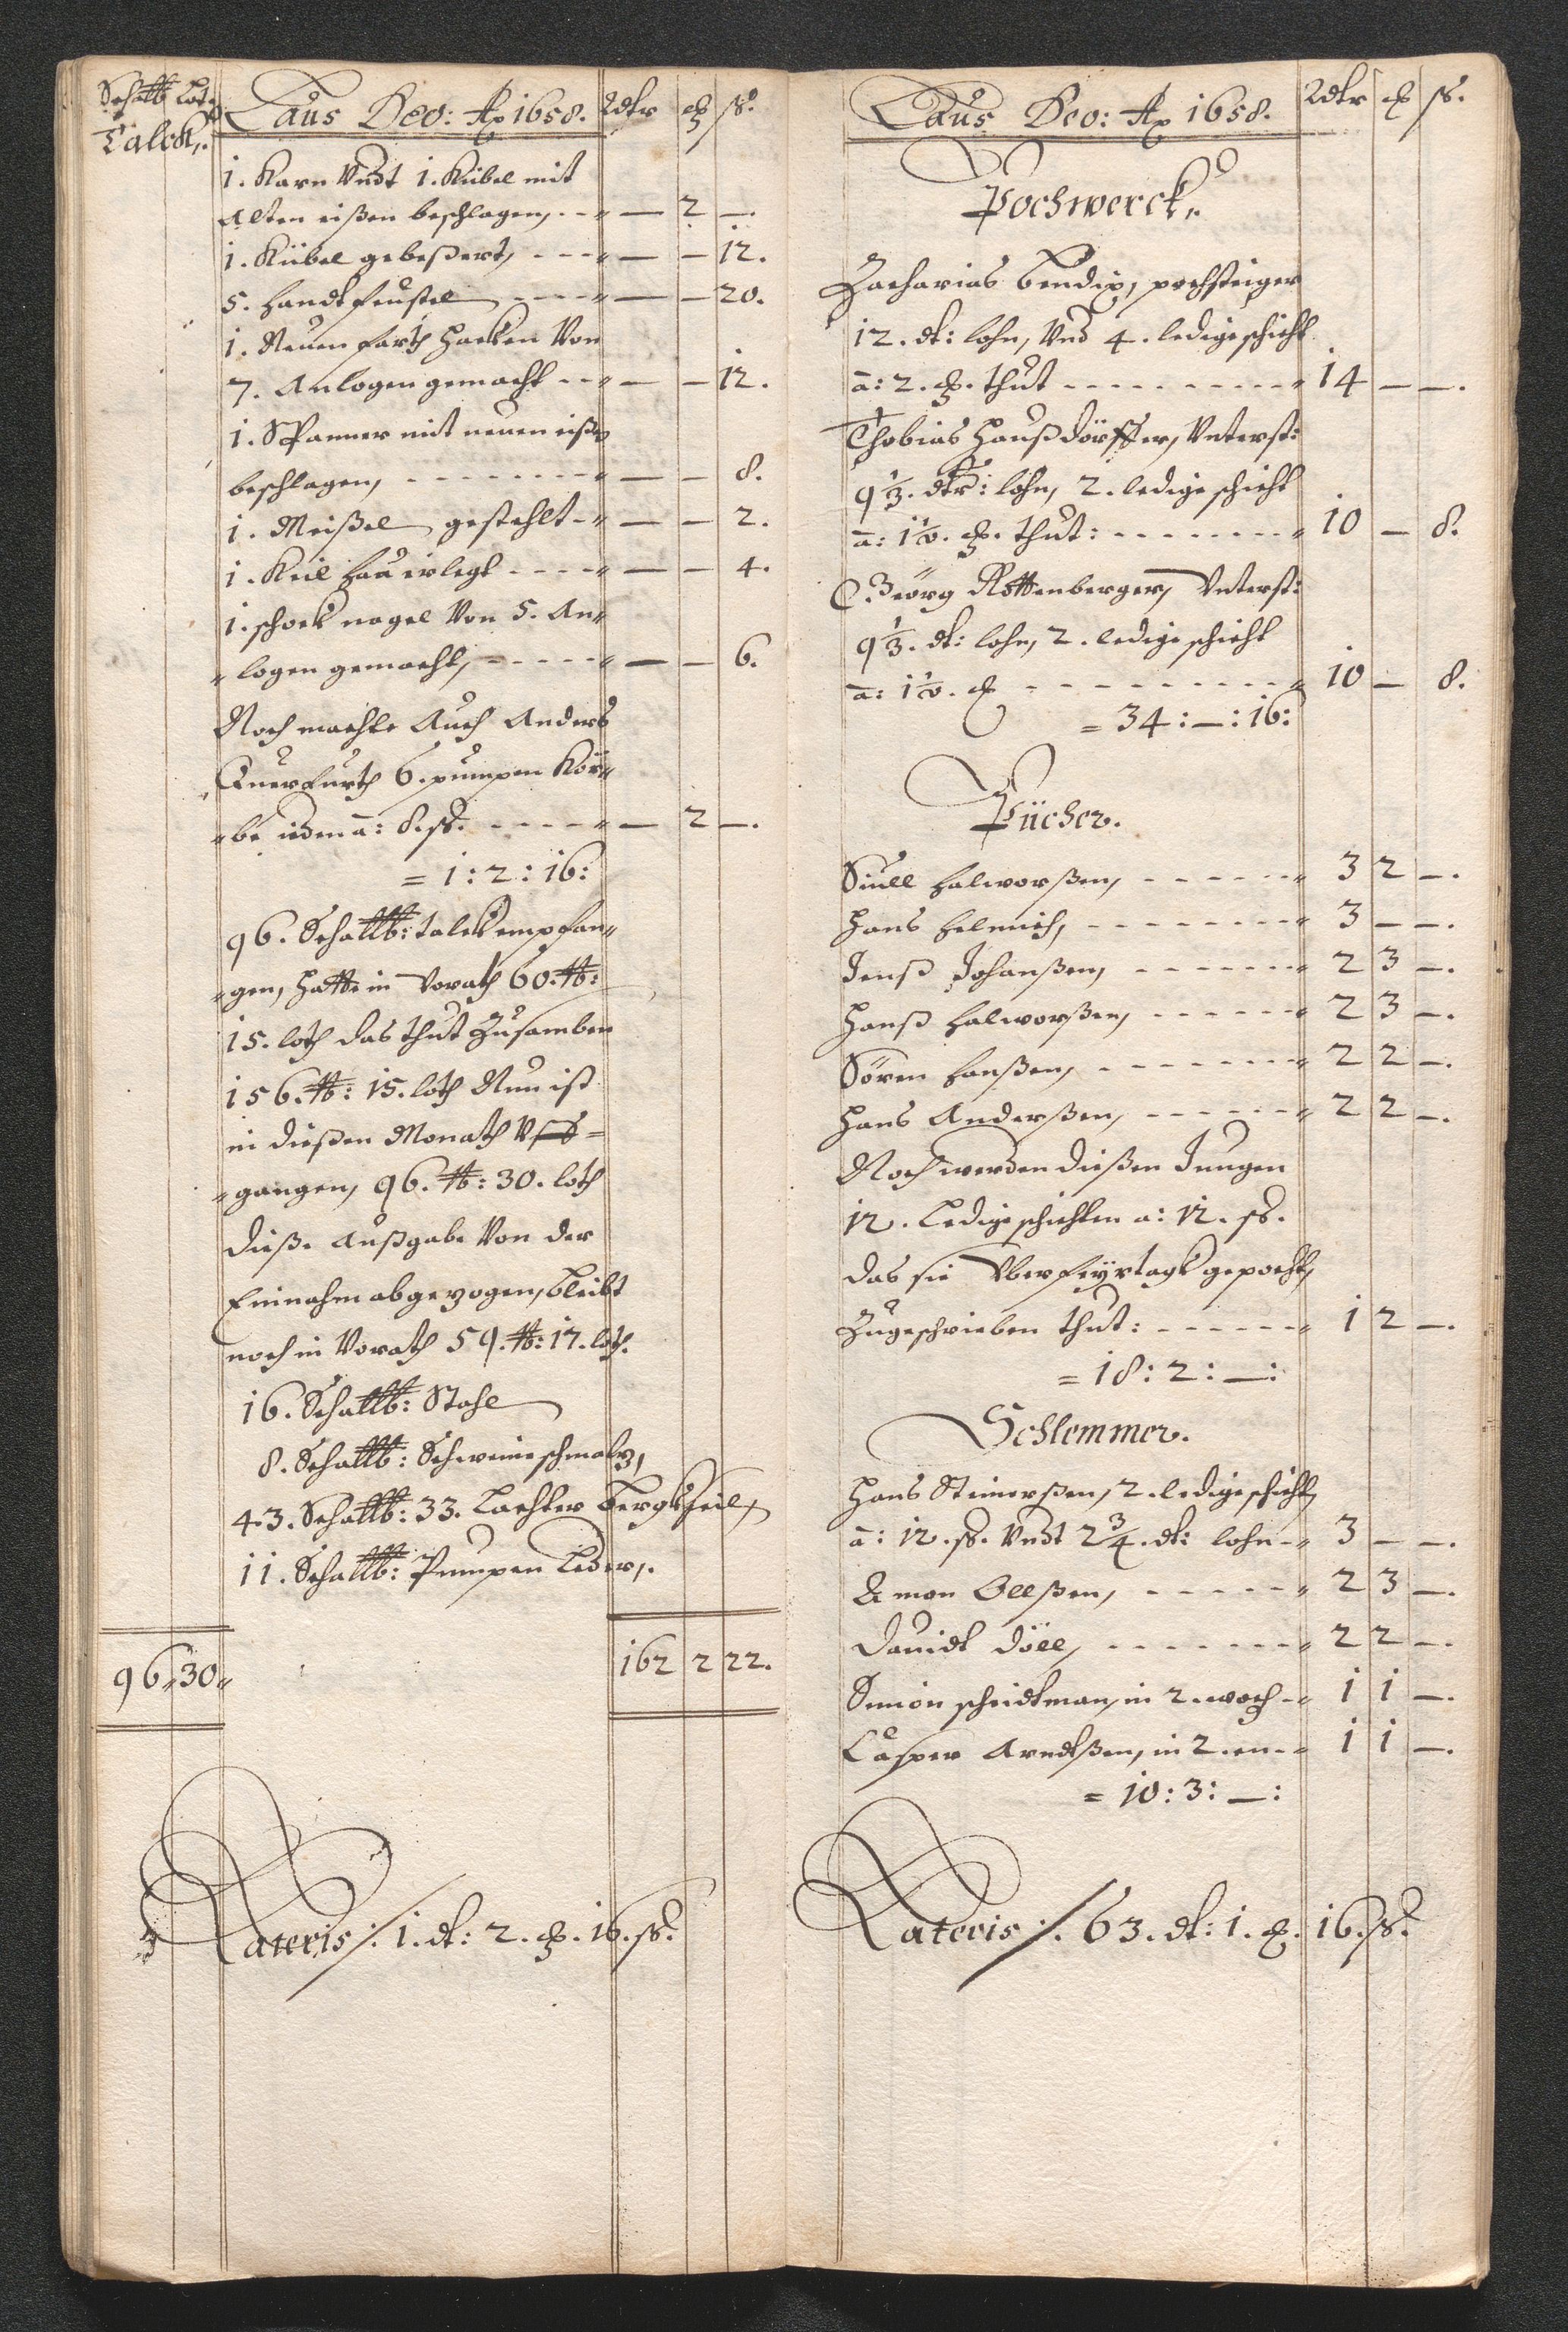 Schalb Lot
Talck
Laus Deo: Ao 1658. Rdtr ort ß.
1. Karn Vndt 1. Kübel mit
alten eißen beschlagen, — 2 —.
1. Kübel gebeßert, — — 12.
5. handt feustel — — 20.
1. Neuen farth hacken Von
7. Anlogen gemacht — — 12.
1. Spanner mit neuen eißen
beschlagen, — — 8.
1. Meißel gestehlt — — 2.
1. Keil hau erlegt — — 4.
1. schock nagel Von 5. An=
=logen gemacht, — — 6.
Noch machte Auch Anders
Querfurth 6. pumpen Kör=
=be ieden â: 8. ß. — 2 —.
= 1 : 2 : 16:
96. Schallb: talck empfan=
=gen, hatte in Vorath 60. lb:
15. loth das thut Zusamben
156. lb: 15. loth Nun ist
in dießen Monath Vff=
=gangen, 96. lb: 30. loth
dieße Außgabe Von der
Einnahm abgezogen, bleibt
noch in Vorath 59. lb: 17. loth.
16. Schallb: Stahl
8. Schallb: Schweineschmaltz,
43. Schallb: 33. Lachter bergkseil,
11. Schallb: Pumpen Leder,.
96 = 30 = 162 2 22.
Lateris /: 1. dt: 2. ort. 16. ß.
Laus Deo: Ao 1658. Rdtr ort ß.
Pochwerck,.
Zacharias bendix, pochsteiger
12. dt: lohn, Vnd 4. ledige schicht
â: 2. ort. thut 14 — —.
Thobias Haußdörffer, Vnterst:
9 1/3. dtr: lohn, 2. ledige schicht
â: 1 1/2. ort. thut: 10 — 8.
Georg Rottenberger, Vnterst:
9 1/3. dt: lohn, 2. ledige schicht
â: 1 1/2. ort 10 — 8.
= 34 : — : 16:
Pücher.
Siull halworßen, 3 2 —.
Hans helmich, 3 — —.
Jenß Johanßen, 2 3 —.
Hanß halworßen, 2 3 —.
Sören hanßen, 2 2 —.
Hans Anderßen, 2 2 —.
Noch werden dießen Jungen
12. Ledige schichten a: 12. ß.
das sie Vber feyrtags gepocht,
Zugeschrieben thut: 1 2 —.
= 18 : 2 : — :
Schlemmer.
Hans Steinerßen, 2. ledige schicht,
â: 12. ß. Vndt 2 3/4. dt: lohn 3 — —.
Amon Ollßen, 2 3 —.
Dauidt döll, 2 2 —.
Simon scheidtman, in 2. woch 1 1 —.
Casper Arndtßen, in 2. en 1 1 —.
= 10 : 3 : — :
Lateris /: 63. dt: 1. ort. 16. ß.